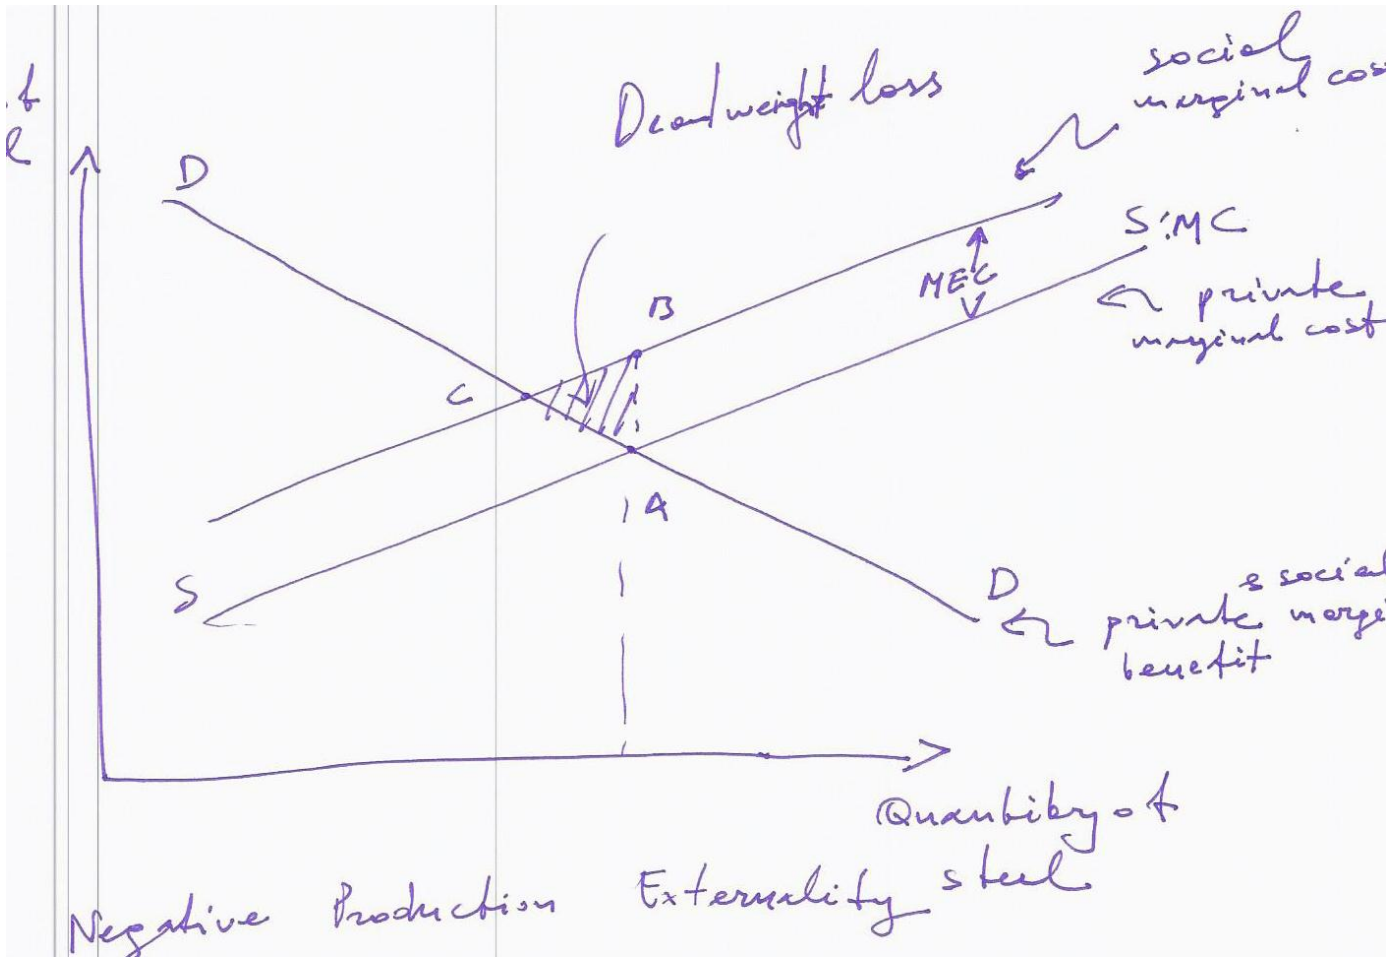 Deadweight loss
social
marginal cos
D
S:MC
MEC
private
marginal cost
B
C
A
S
D
& social
private margi
benefit
Quantity of
steel
Negative Production Externality